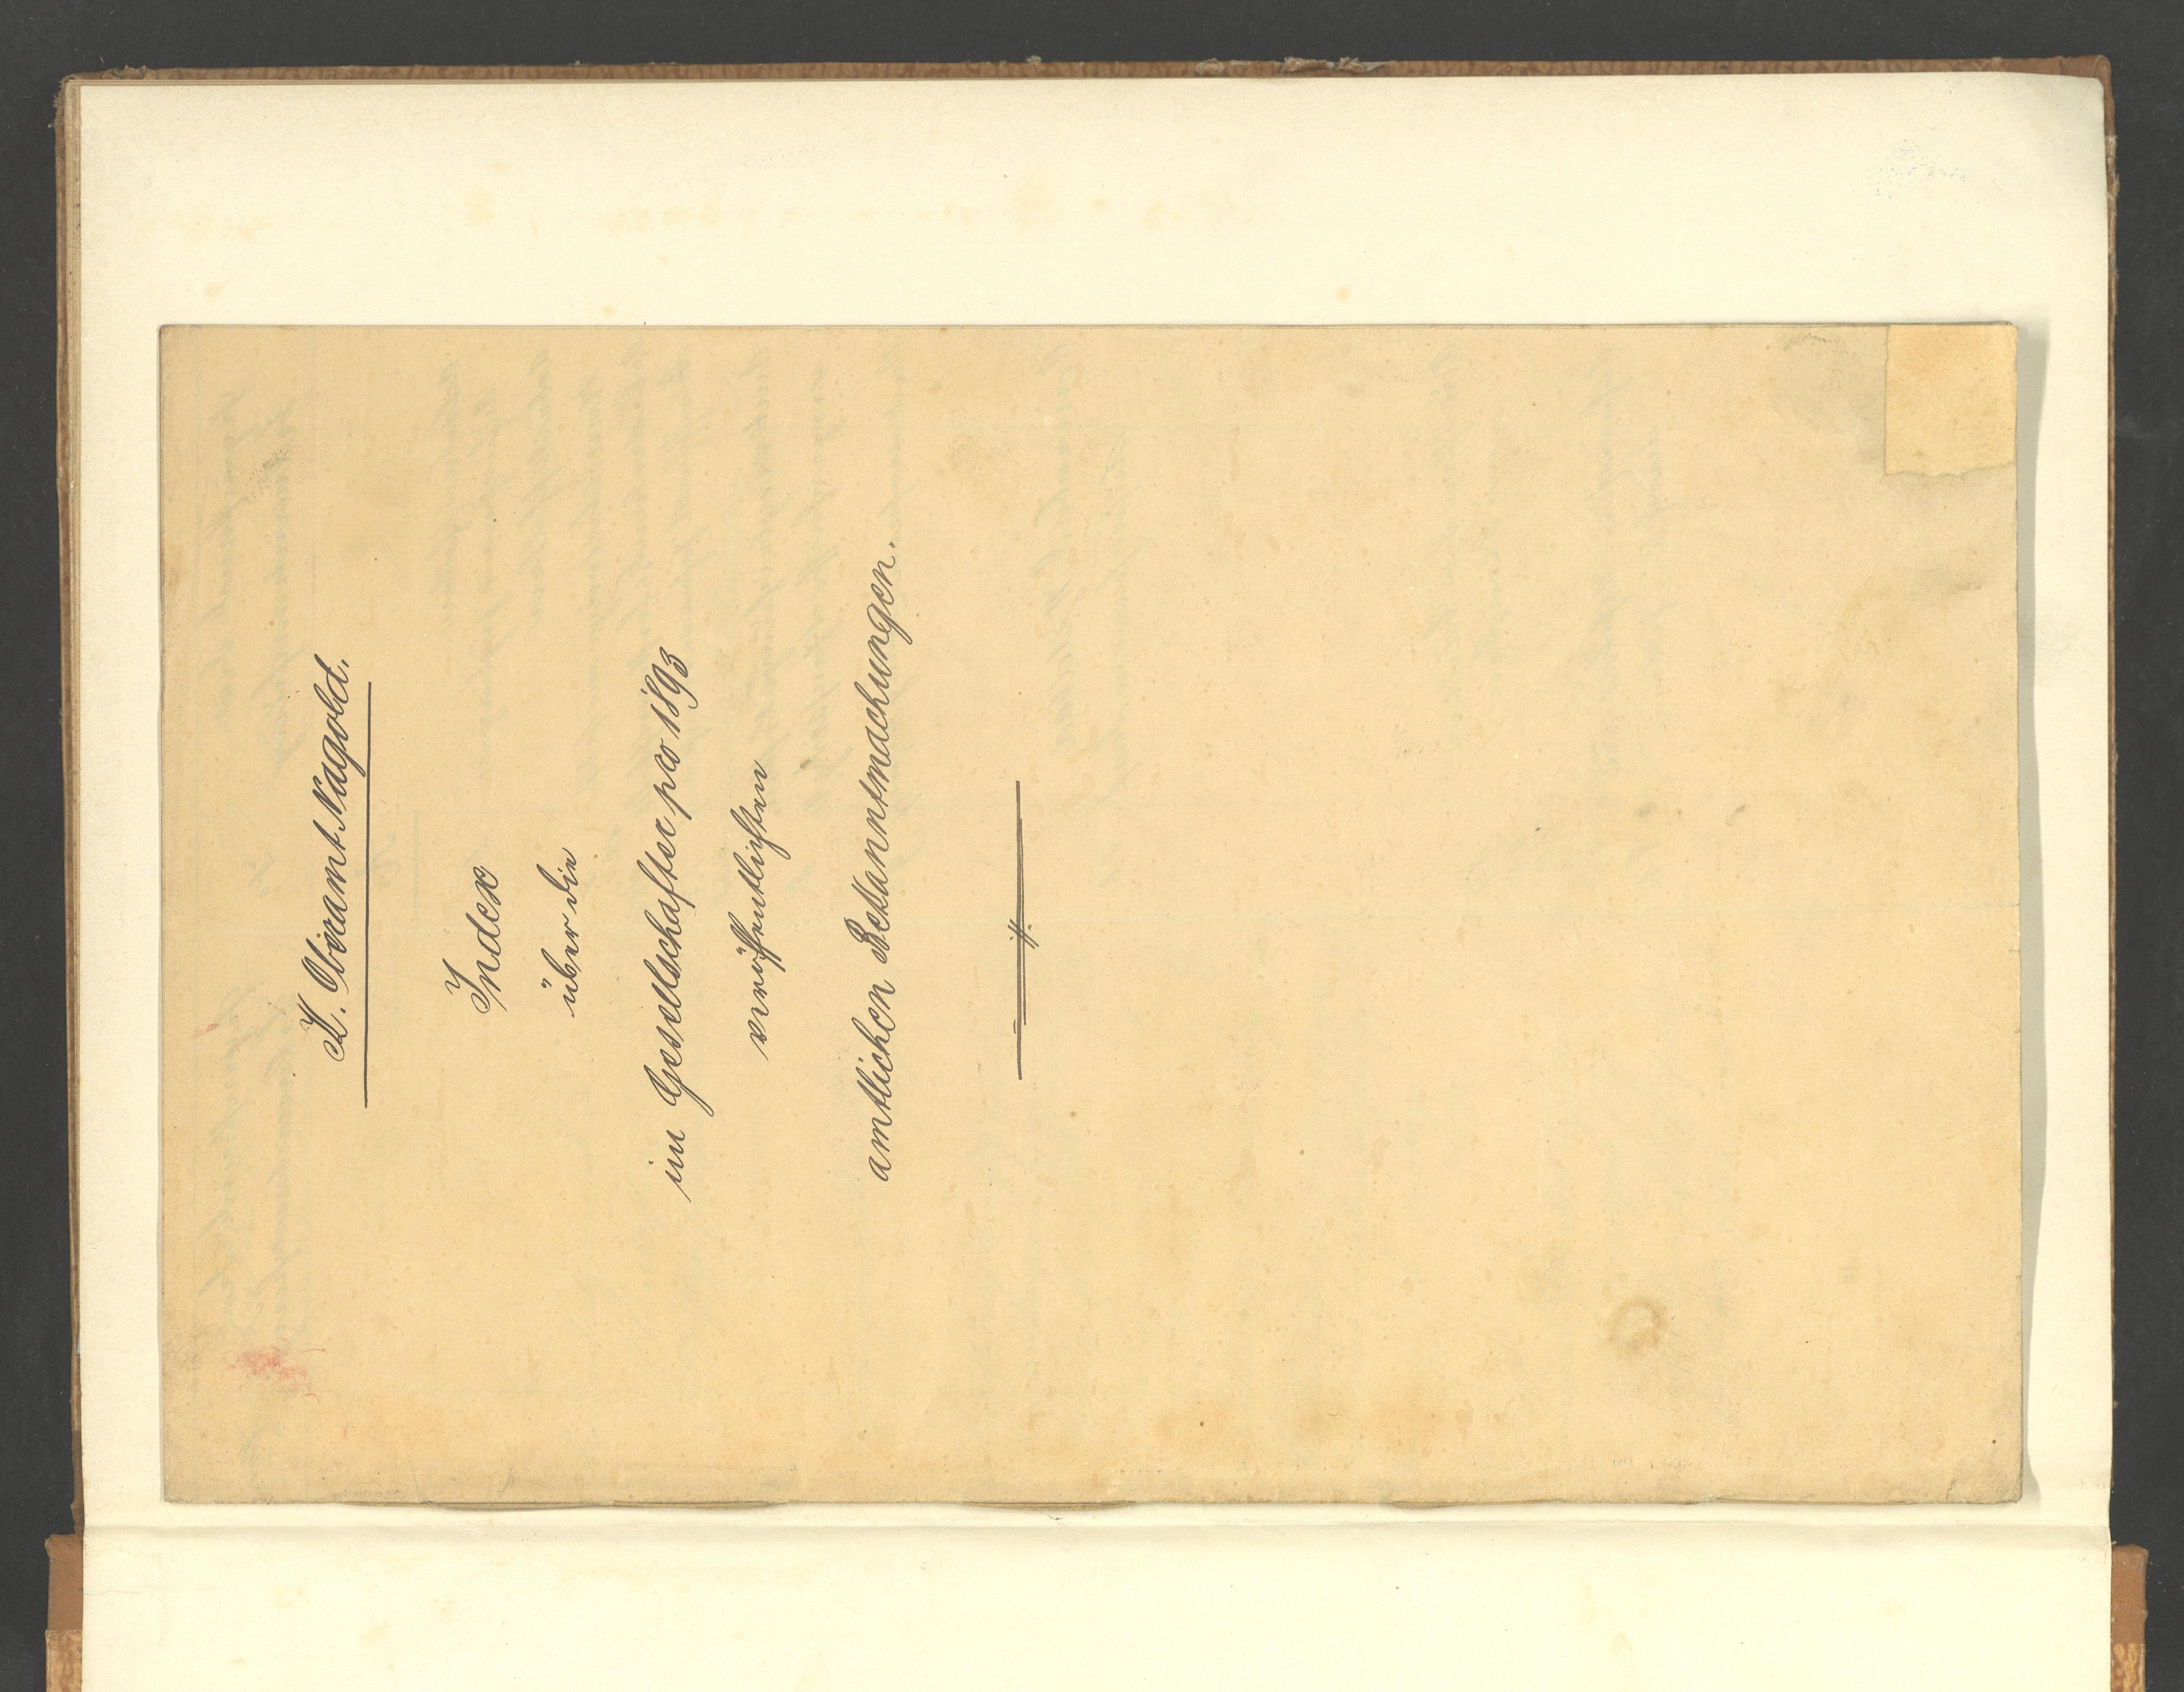 K. Oberamt Nagold.
Index
über die
im Gesellschafter pro 1893
veröffentlichten
amtlichen Bekanntmachungen.